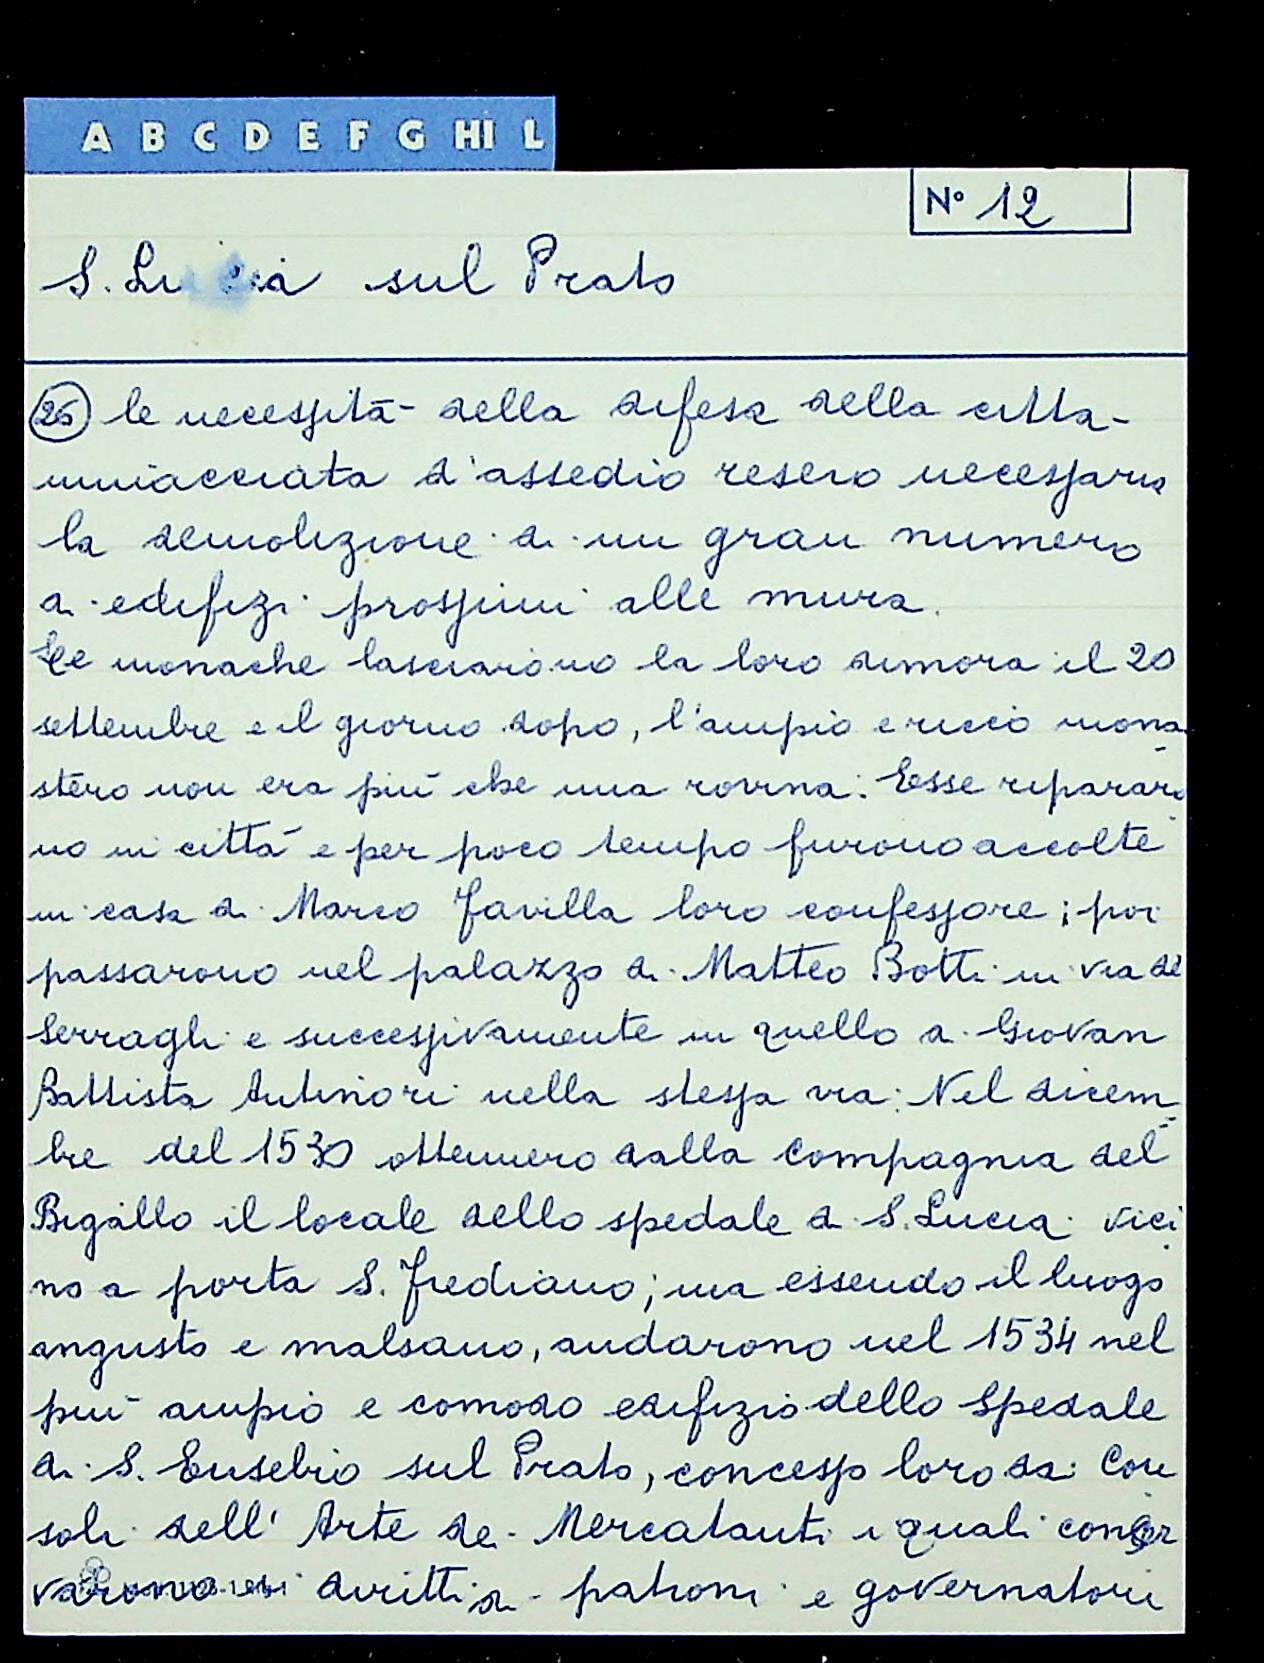 A B C D E F G HI L
N° 12
S. Lucia sul Prato
26 le necessità della difesa della città
minacciata d'assedio resero necessaria
la demolizione di un gran numero
di edifizi prossimi alle mura.
Le monache lasciarono la loro dimora il 20
settembre e il giorno dopo, l'ampio e ricco mona
stero non era più che una rovina. Esse riparara
no in città e per poco tempo furono accolte
in casa di Marco Favilla loro confessore; poi
passarono nel palazzo di Matteo Botti in via de
Serragli e successivamente in quello di Giovan
Battista Antinori nella stessa via. Nel dicem
bre del 1530 ottennero dalla Compagnia del
Bigallo il locale dello spedale di S. Lucia vici
no a porta S. Frediano; ma essendo il luogo
angusto e malsano, andarono nel 1534 nel
più ampio e comodo edifizio dello Spedale
di S. Eusebio sul Prato, concesso loro dai Con
soli dell'Arte dei Mercatanti i quali conser
varono diritti di patroni e governatori